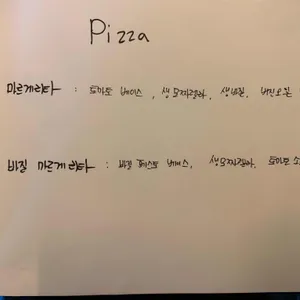 Pizza
마르게리타 : 토마토 베이스, 생모짜렐라, 생바질,
바질 마르게리타 : 바질 페스토 베이스, 생모짜렐라, 토마토 소